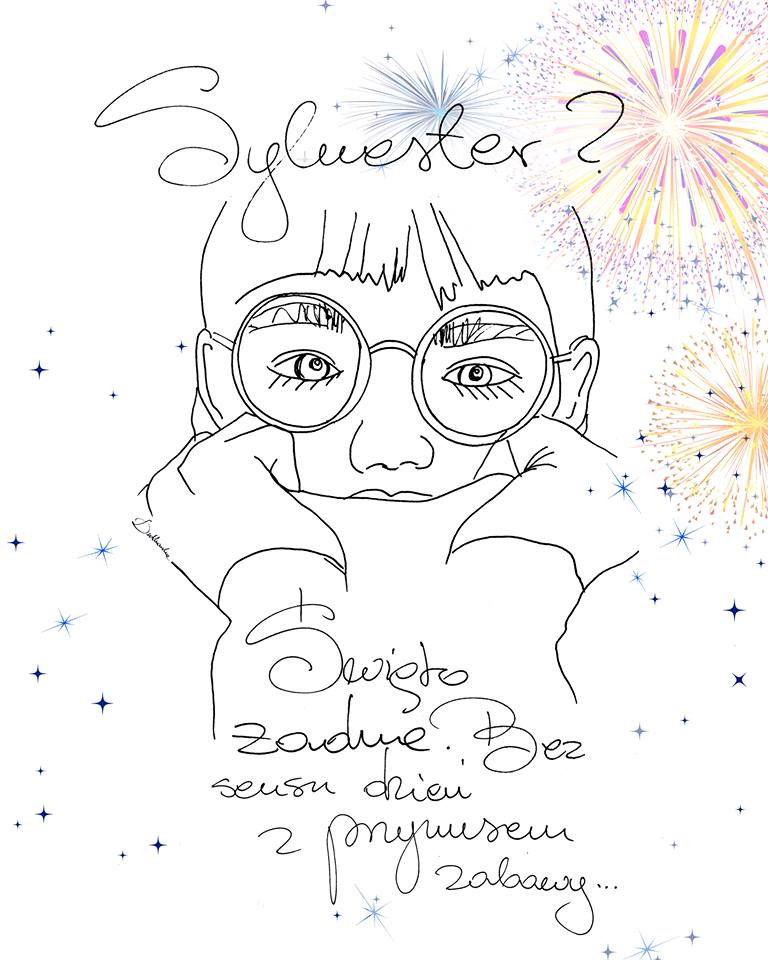 Sylwester ?
Święto
żadne. Bez
sensu dzień
z przymusem
zabawy...